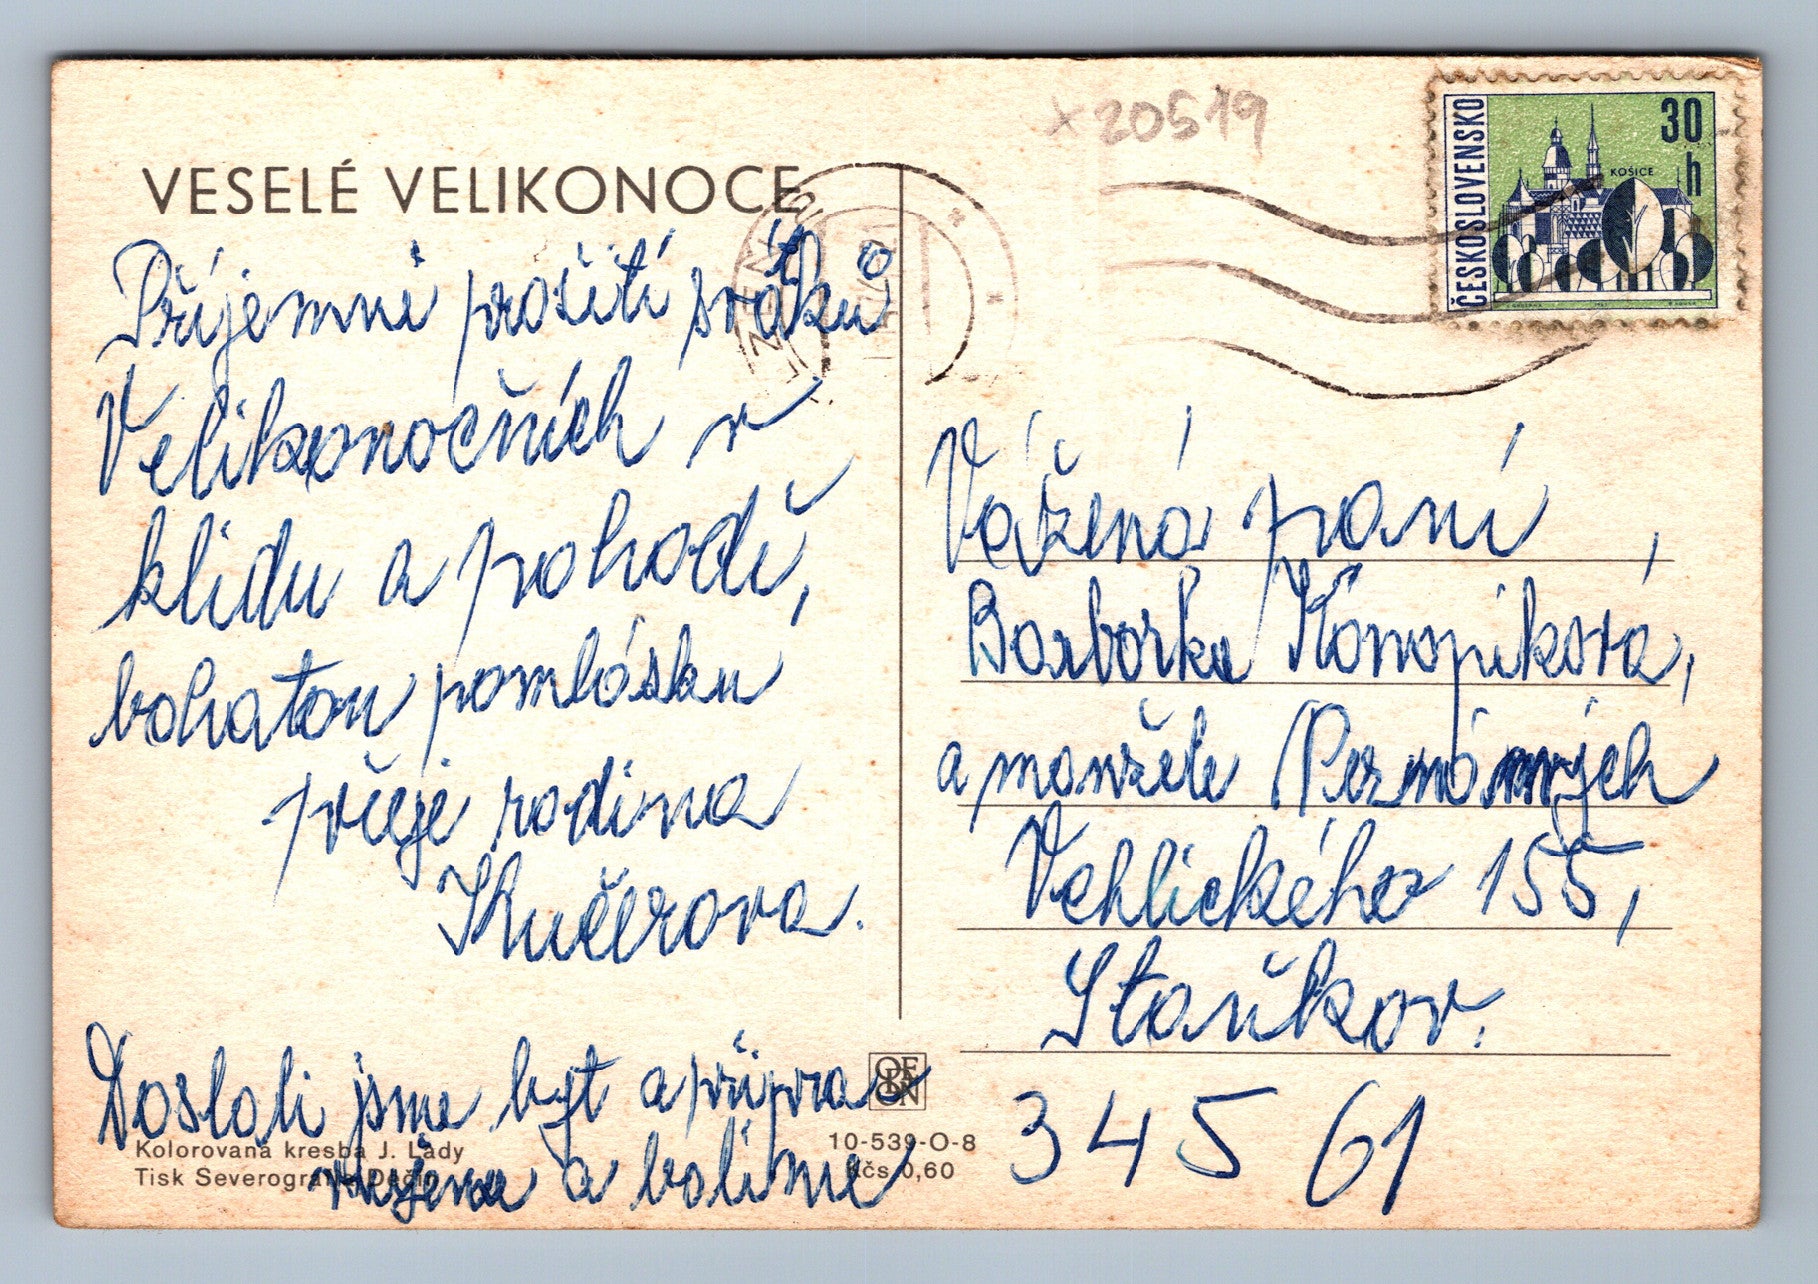 x 20519
ČESKOSLOVENSKO
30
h
KOŠICE
VESELÉ VELIKONOCE
PLZEŇ
Příjemné prožití svátků
Velikonočních v
klidu a pohodě,
bohatou pomlásku
přeje rodina
Kučerova.
Dostali jsme byt a připra
a balíme
Vážená paní,
Barborka Konopíková,
a manžele
Vchlického 155,
Staňkov.
345 61
Kolorovaná kresba J. Lady
Tisk Severografia Děčín
ORFANN
10-539-O-8
Kčs 0,60